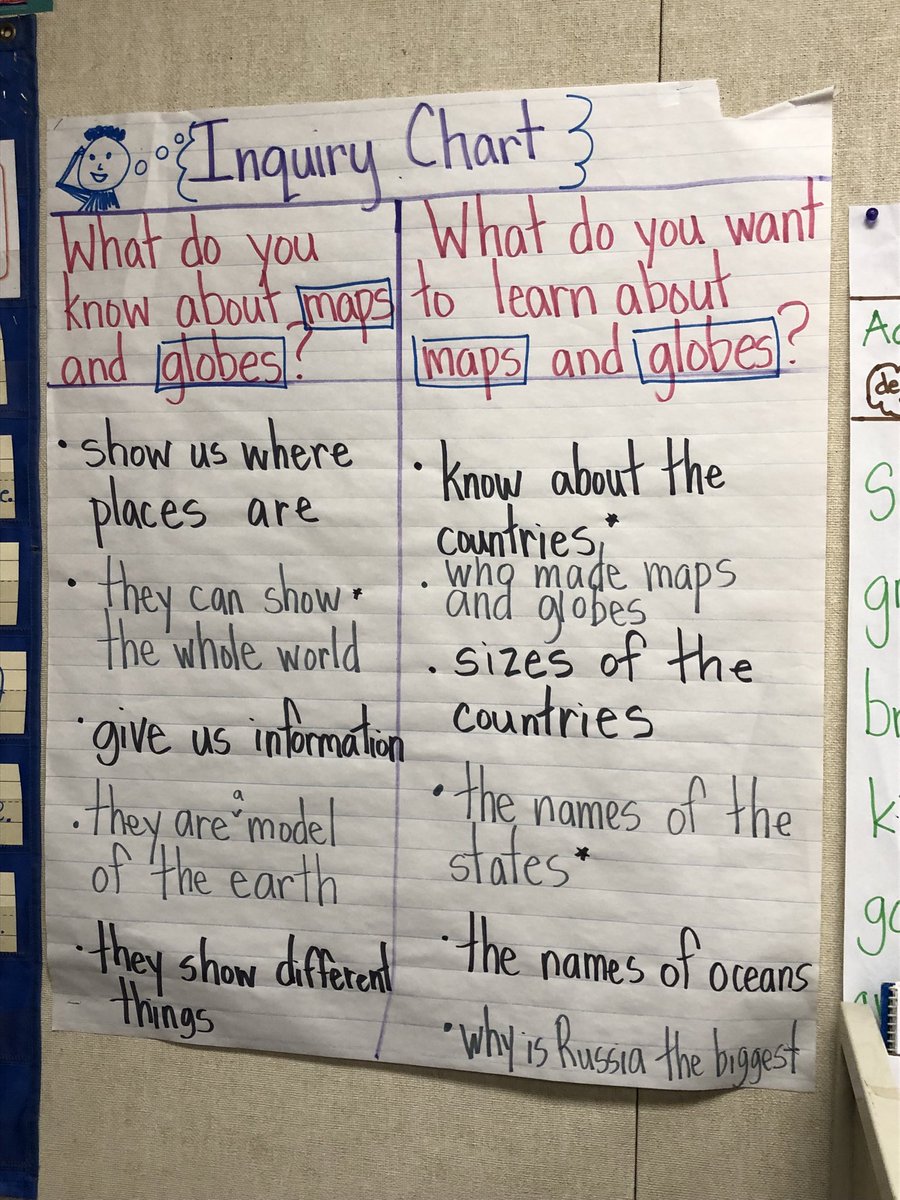 Inquiry Chart
What do you
know about maps
and globes?
What do you want
to learn about
maps and globes?
• show us where
places are
• they can show *
the whole world
• give us information
• they are a model
of the earth
• they show different
things
• know about the
countries *
• who made maps
and globes
• sizes of the
countries
• the names of the
states *
• the names of oceans
• why is Russia the biggest